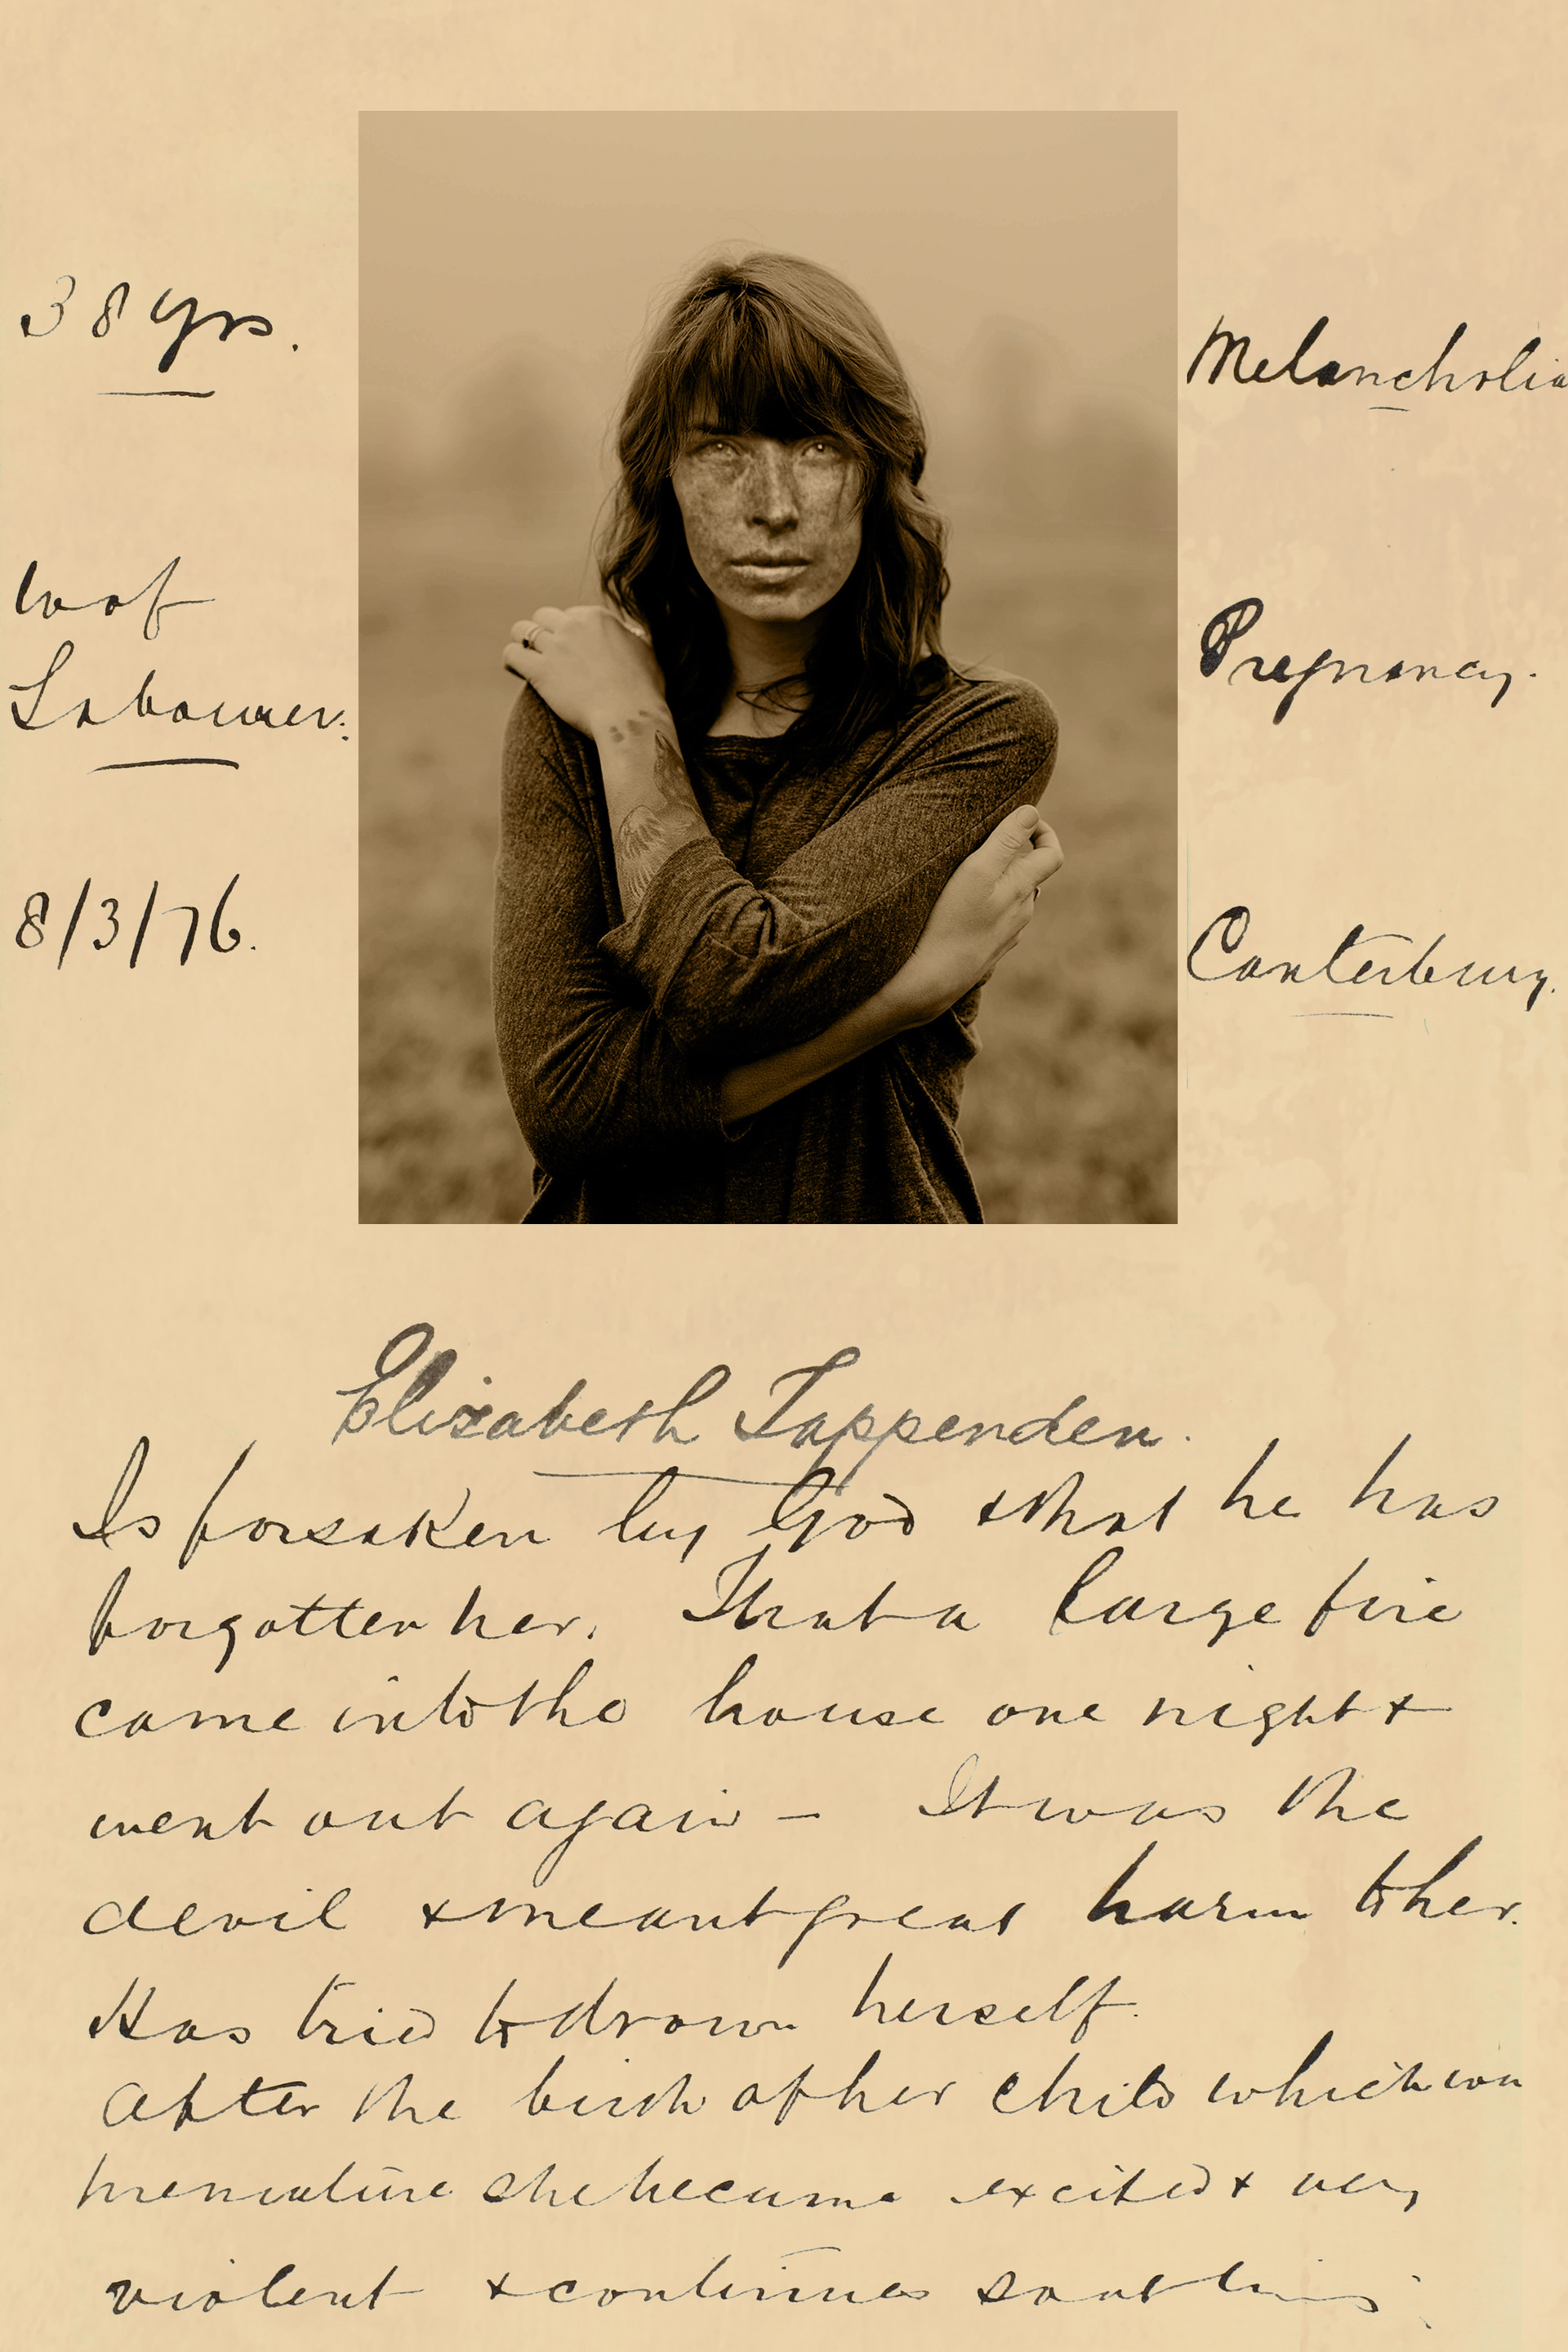 38 yrs.
Melancholia
w of
Labourer.
Pregnancy.
8/3/76.
Canterbury.
Elizabeth Tappenden.
Is forsaken by God & that he has
forgotten her. That a large fire
came into the house one night &
went out again – It was the
devil & meant great harm to her.
Has tried to drown herself.
After the birth of her child which was
premature she became excited & very
violent & continues so at times.